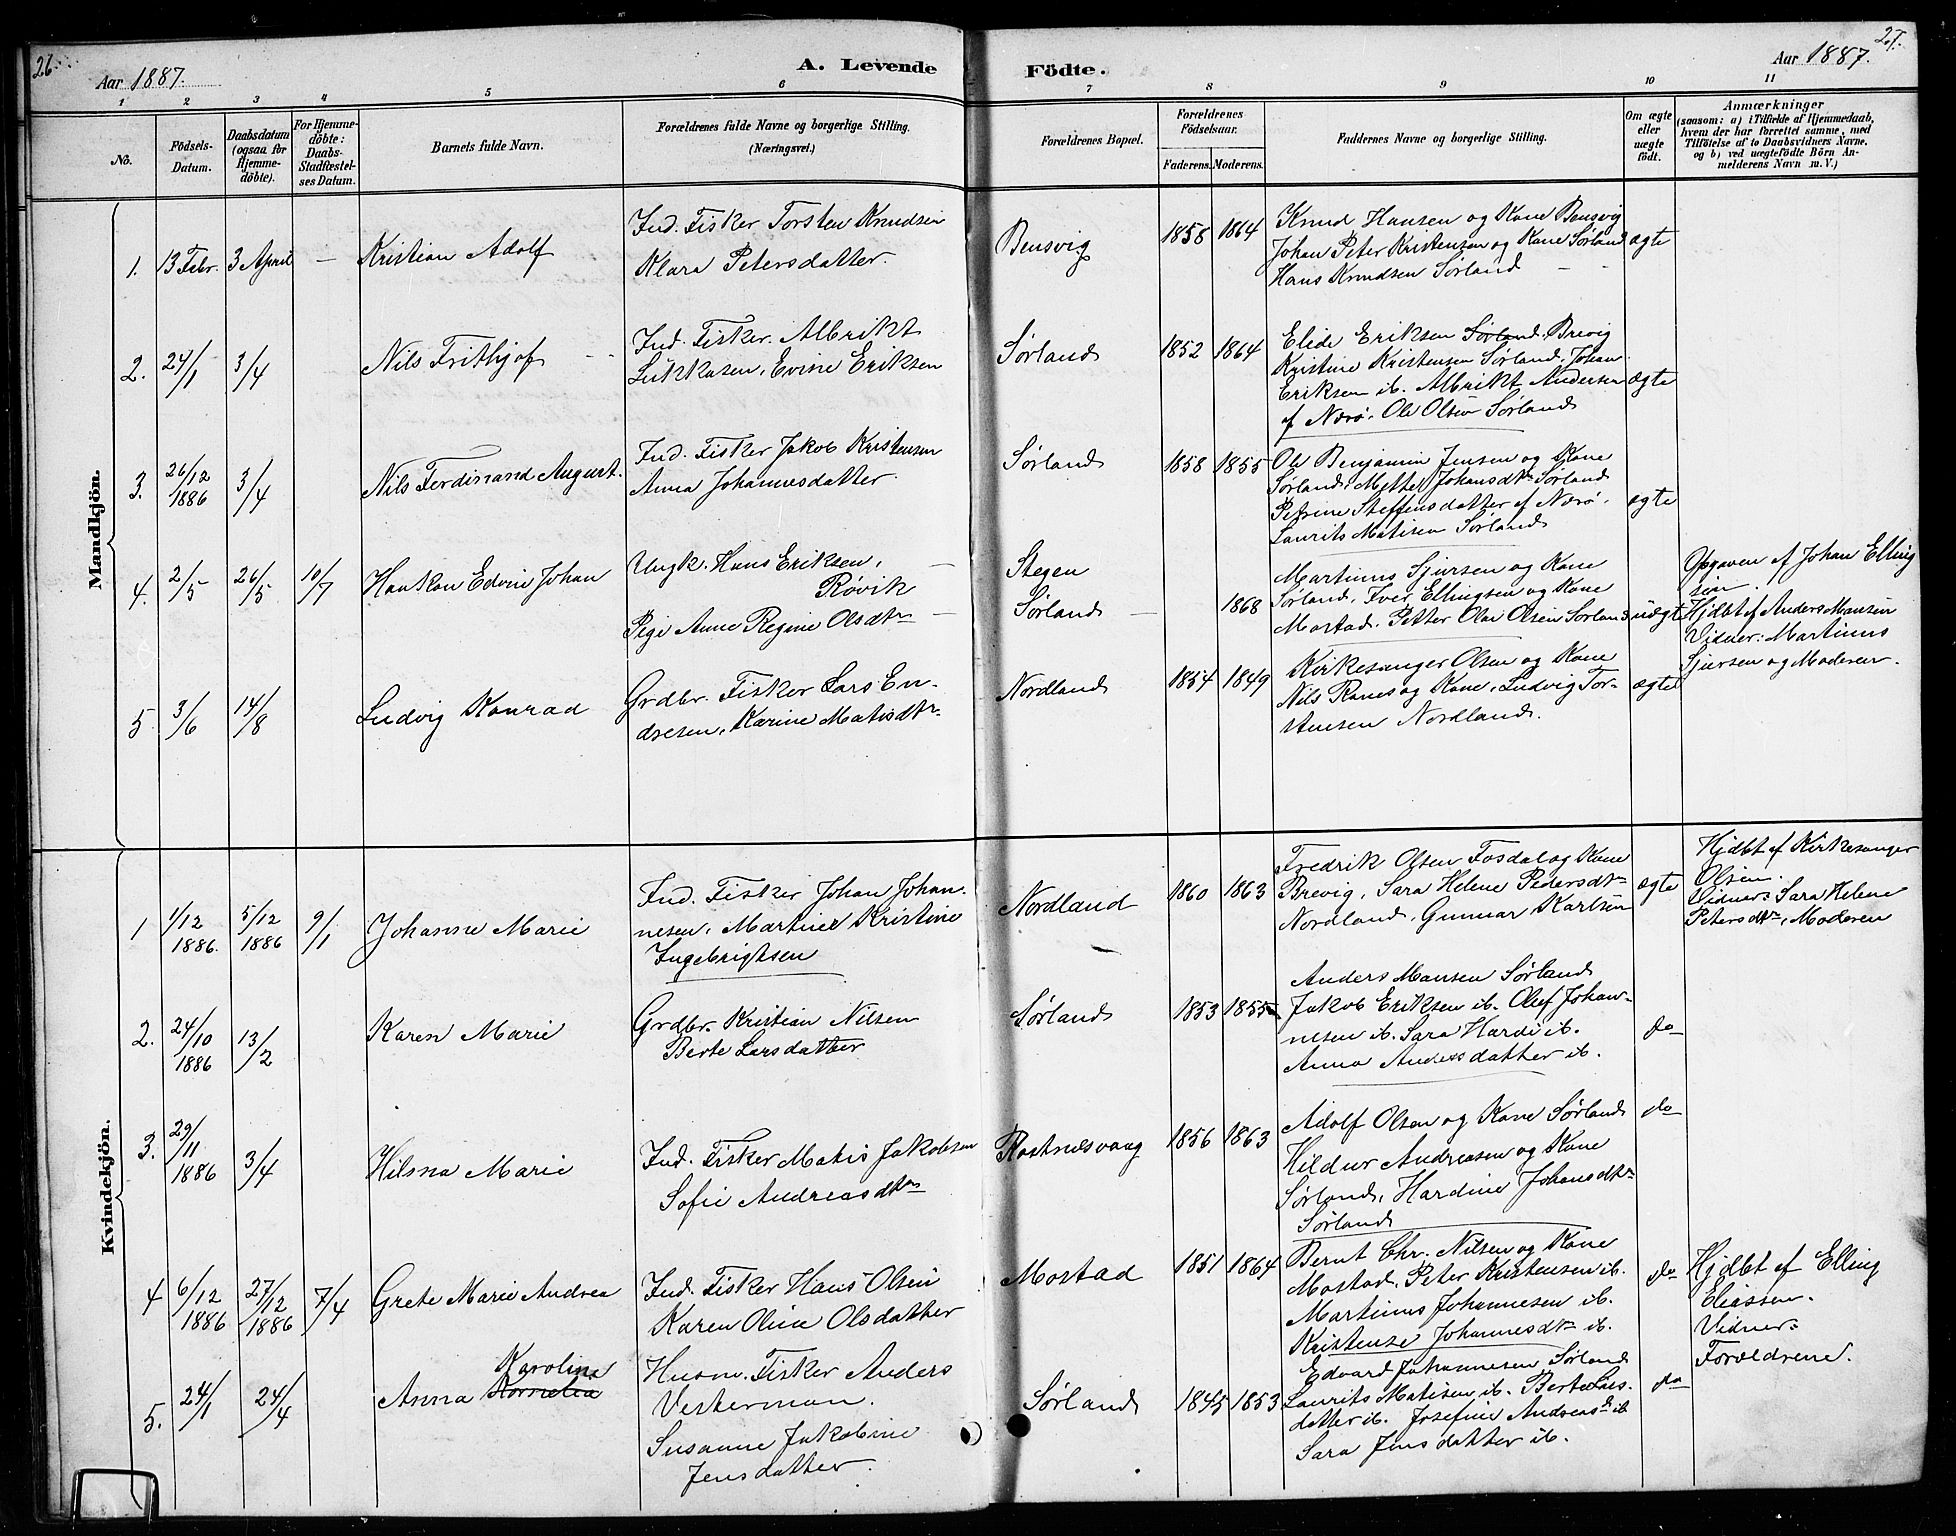 26.
27.
Aar 1887.
A. Levende
Födte.
Aar 1887.
1 2 3 4 5 6 7 8 9 10 11
No.
Födsels-
Datum.
Daabsdatum
(ogsaa for
Hjemme-
döbte).
For Hjemme-
döbte:
Daabs-
Stadfæstel-
ses Datum.
Barnets fulde Navn.
Forældrenes fulde Navne og borgerlige Stilling.
(Næringsvei.)
Forældrenes Bopæl.
Forældrenes
Födselsaar.
Faderens. Moderens.
Faddernes Navne og borgerlige Stilling.
Om ægte
eller
uægte
födt.
Anmærkninger
(saasom: a) i Tilfælde af Hjemmedaab,
hvem der har forrettet samme, med
Tilföielse af to Daabsvidners Navne,
og b) ved uægtefödte Börn An-
melderens Navn m. V.)
Mandkjön.
1. 13 Febr. 3 April — Kristian Adolf
Ind. Fisker Torsten Knudsen
Klara Petersdatter.
Bensvig 1858 1864
Knud Hansen og Kone Bensvig
Johan Peter Kristensen og Kone Sørland
Hans Knudsen Sørland
ægte
2. 24/1 3/4 Nils Frithjof
Ind. Fisker. Albrikt
Lukkasen, Evine Eriksen
Sørland 1852 1864
Elide Eriksen Sørland, Brevig
Kristine Kristensen Sørland. Johan
Eriksen ib. Albrikt Andersen
af Nærø. Ole Olsen Sørland
ægte
3. 26/12 1886 3/4 Nils Ferdinand August.
Ind. Fisker Jakob Kristensen
Anna Johannesdatter.
Sørland 1858 1855
Ole Benjamin Jensen og Kone
Sørland, Mette Johansdtr Sørland
Petrine Steffensdatter af Nærø.
Laurits Matisen Sørland
ægte
4. 2/5 26/5 10/7 Haakon Edvin Johan
Ungk. Hans Eriksen,
Røvik
Pige Anne Regine Olsdtr
Stegen
Sørland — 1868
Martinus Sjursen og Kone
Sørland, Iver Ellingsen og Kone
Mostad. Petter Olai Olsen Sørland
uægte
Opgaven af Johan Elling
sen.
Hjdbt af Anders Mansen
Vidner: Martinus
Sjursen og Moderen.
5. 3/6 14/8 Ludvig Konrad
Grdbr. Fisker Lars En-
dresen, Karine Matisdtr
Nordland 1854 1849
Kirkesanger Olsen og Kone
Nils Ranes og Kone, Ludvig Tor-
stensen Nordland.
ægte
Kvindekjön.
1 1/12 1886. 5/12 1886 9/1 Johanne Marie
Ind. Fisker Johan Johan-
nesen, Martine Kristine
Ingebrigtsen
Nordland 1860 1863
Fredrik Olsen Fosdal og Kone
Brevig, Sara Helene Pedersdtr
Nordland, Gunnar Karlsen
ægte
Hjdbt af Kirkesanger
Olsen.
Vidner Sara Helene
Petersdtr, Moderen
2. 24/10 1886 13/2 Karen Marie
Grdbr. Kristian Nilsen
Berte Larsdatter
Sørland 1853 1855
Anders Mansen Sørland
Jakob Eriksen ib. Oluf Johan-
nesen ib. Sara Hardi ib.
Anna Andersdatter ib.
do
3. 29/11 1886 3/4 Hilma Marie
Ind. Fisker Matis Jakobsen
Sofie Andreasdtr
Rostnesvaag 1856 1863
Adolf Olsen og Kone Sørland
Hildur Andreasen og Kone
Sørland, Hardine Johansdtr
Sørland
do
4 6/12 1886 27/12 1886 7/4 Grete Marie Andrea
Ind. Fisker Hans Olsen
Karen Oline Olsdatter
Mostad 1851 1864
Bernt Chr. Nilsen og Kone
Mostad, Peter Kristensen ib.
Martinus Johannesen ib.
Kristense Johannesdtr ib.
do
Hjdbt af Elling
Eliassen.
Vidner
Forældrene.
5. 24/1 24/4 Anna Kornelia Karoline
Husm. Fisker Anders
Vesterman.
Susanne Jakobine
Jensdatter.
Sørland 1845 1853
Edvard Johannesen Sørland
Laurits Matisen ib. Berte Lars-
datter ib. Josefine Andreasd ib
Sara Jensdatter ib.
do